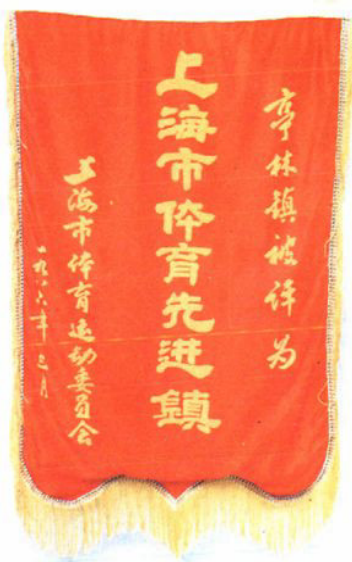 亭林镇被评为
上海市体育先进鎮
上海市体育运动委员会
一九八六年三月